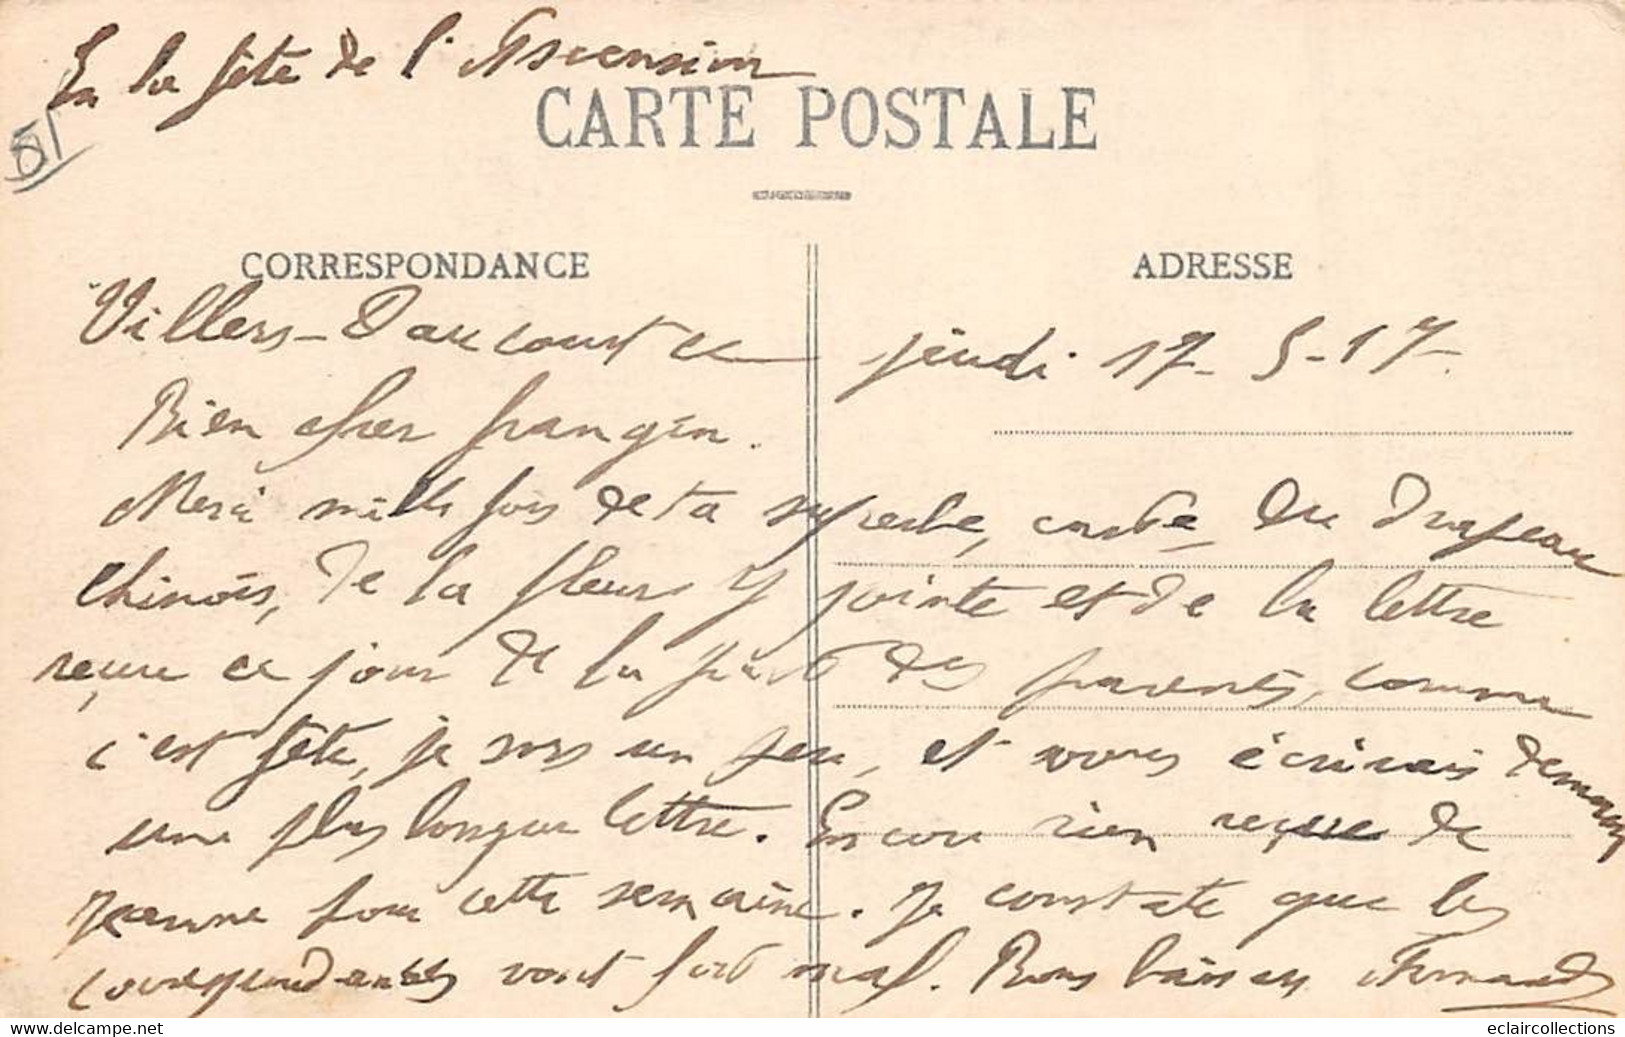 En la fête de l'Ascension
CARTE POSTALE
81
CORRESPONDANCE
ADRESSE
Villers-Daucourt ce jeudi 17-5-17-
Bien cher frangin.
Merci mille fois de ta superbe, carte, du drapeau
chinois, de la fleur y jointe et de la lettre
reçue ce jour de la part des parents, comme
c'est fête, je sors un peu, et vous écrirais demain
une plus longue lettre. Encore rien reçue de
Jeanne pour cette semaine. Je constate que les
correspondances vont fort mal. Bons baisers Fernand
delcampe.net
eclaircollections